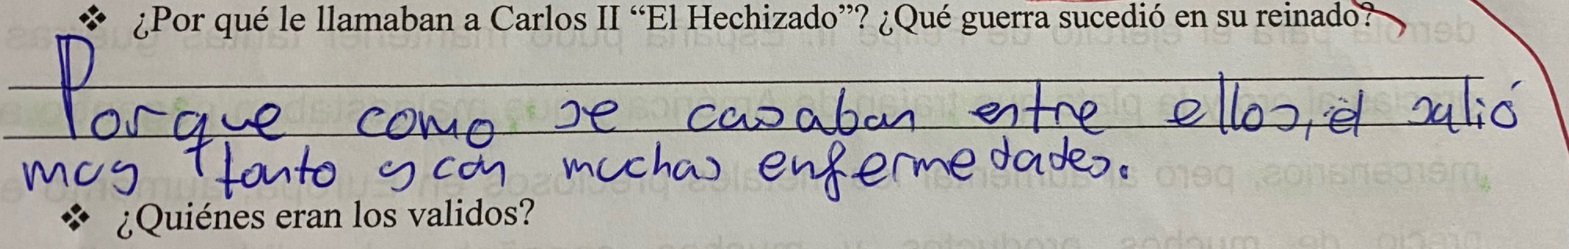 ❖ ¿Por qué le llamaban a Carlos II “El Hechizado”? ¿Qué guerra sucedió en su reinado?
Porque como se casaban entre ellos, él salió
muy tonto y con muchas enfermedades.
❖ ¿Quiénes eran los validos?